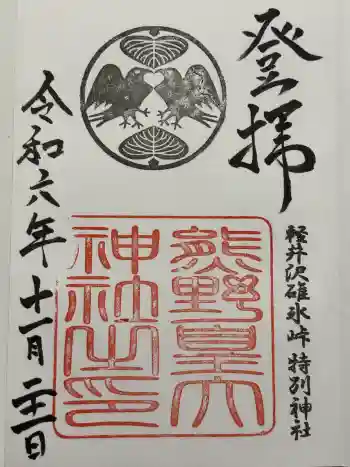 登拝
軽井沢碓氷峠 特別神社
熊野皇大
神社之印
令和六年 十一月 二十一日